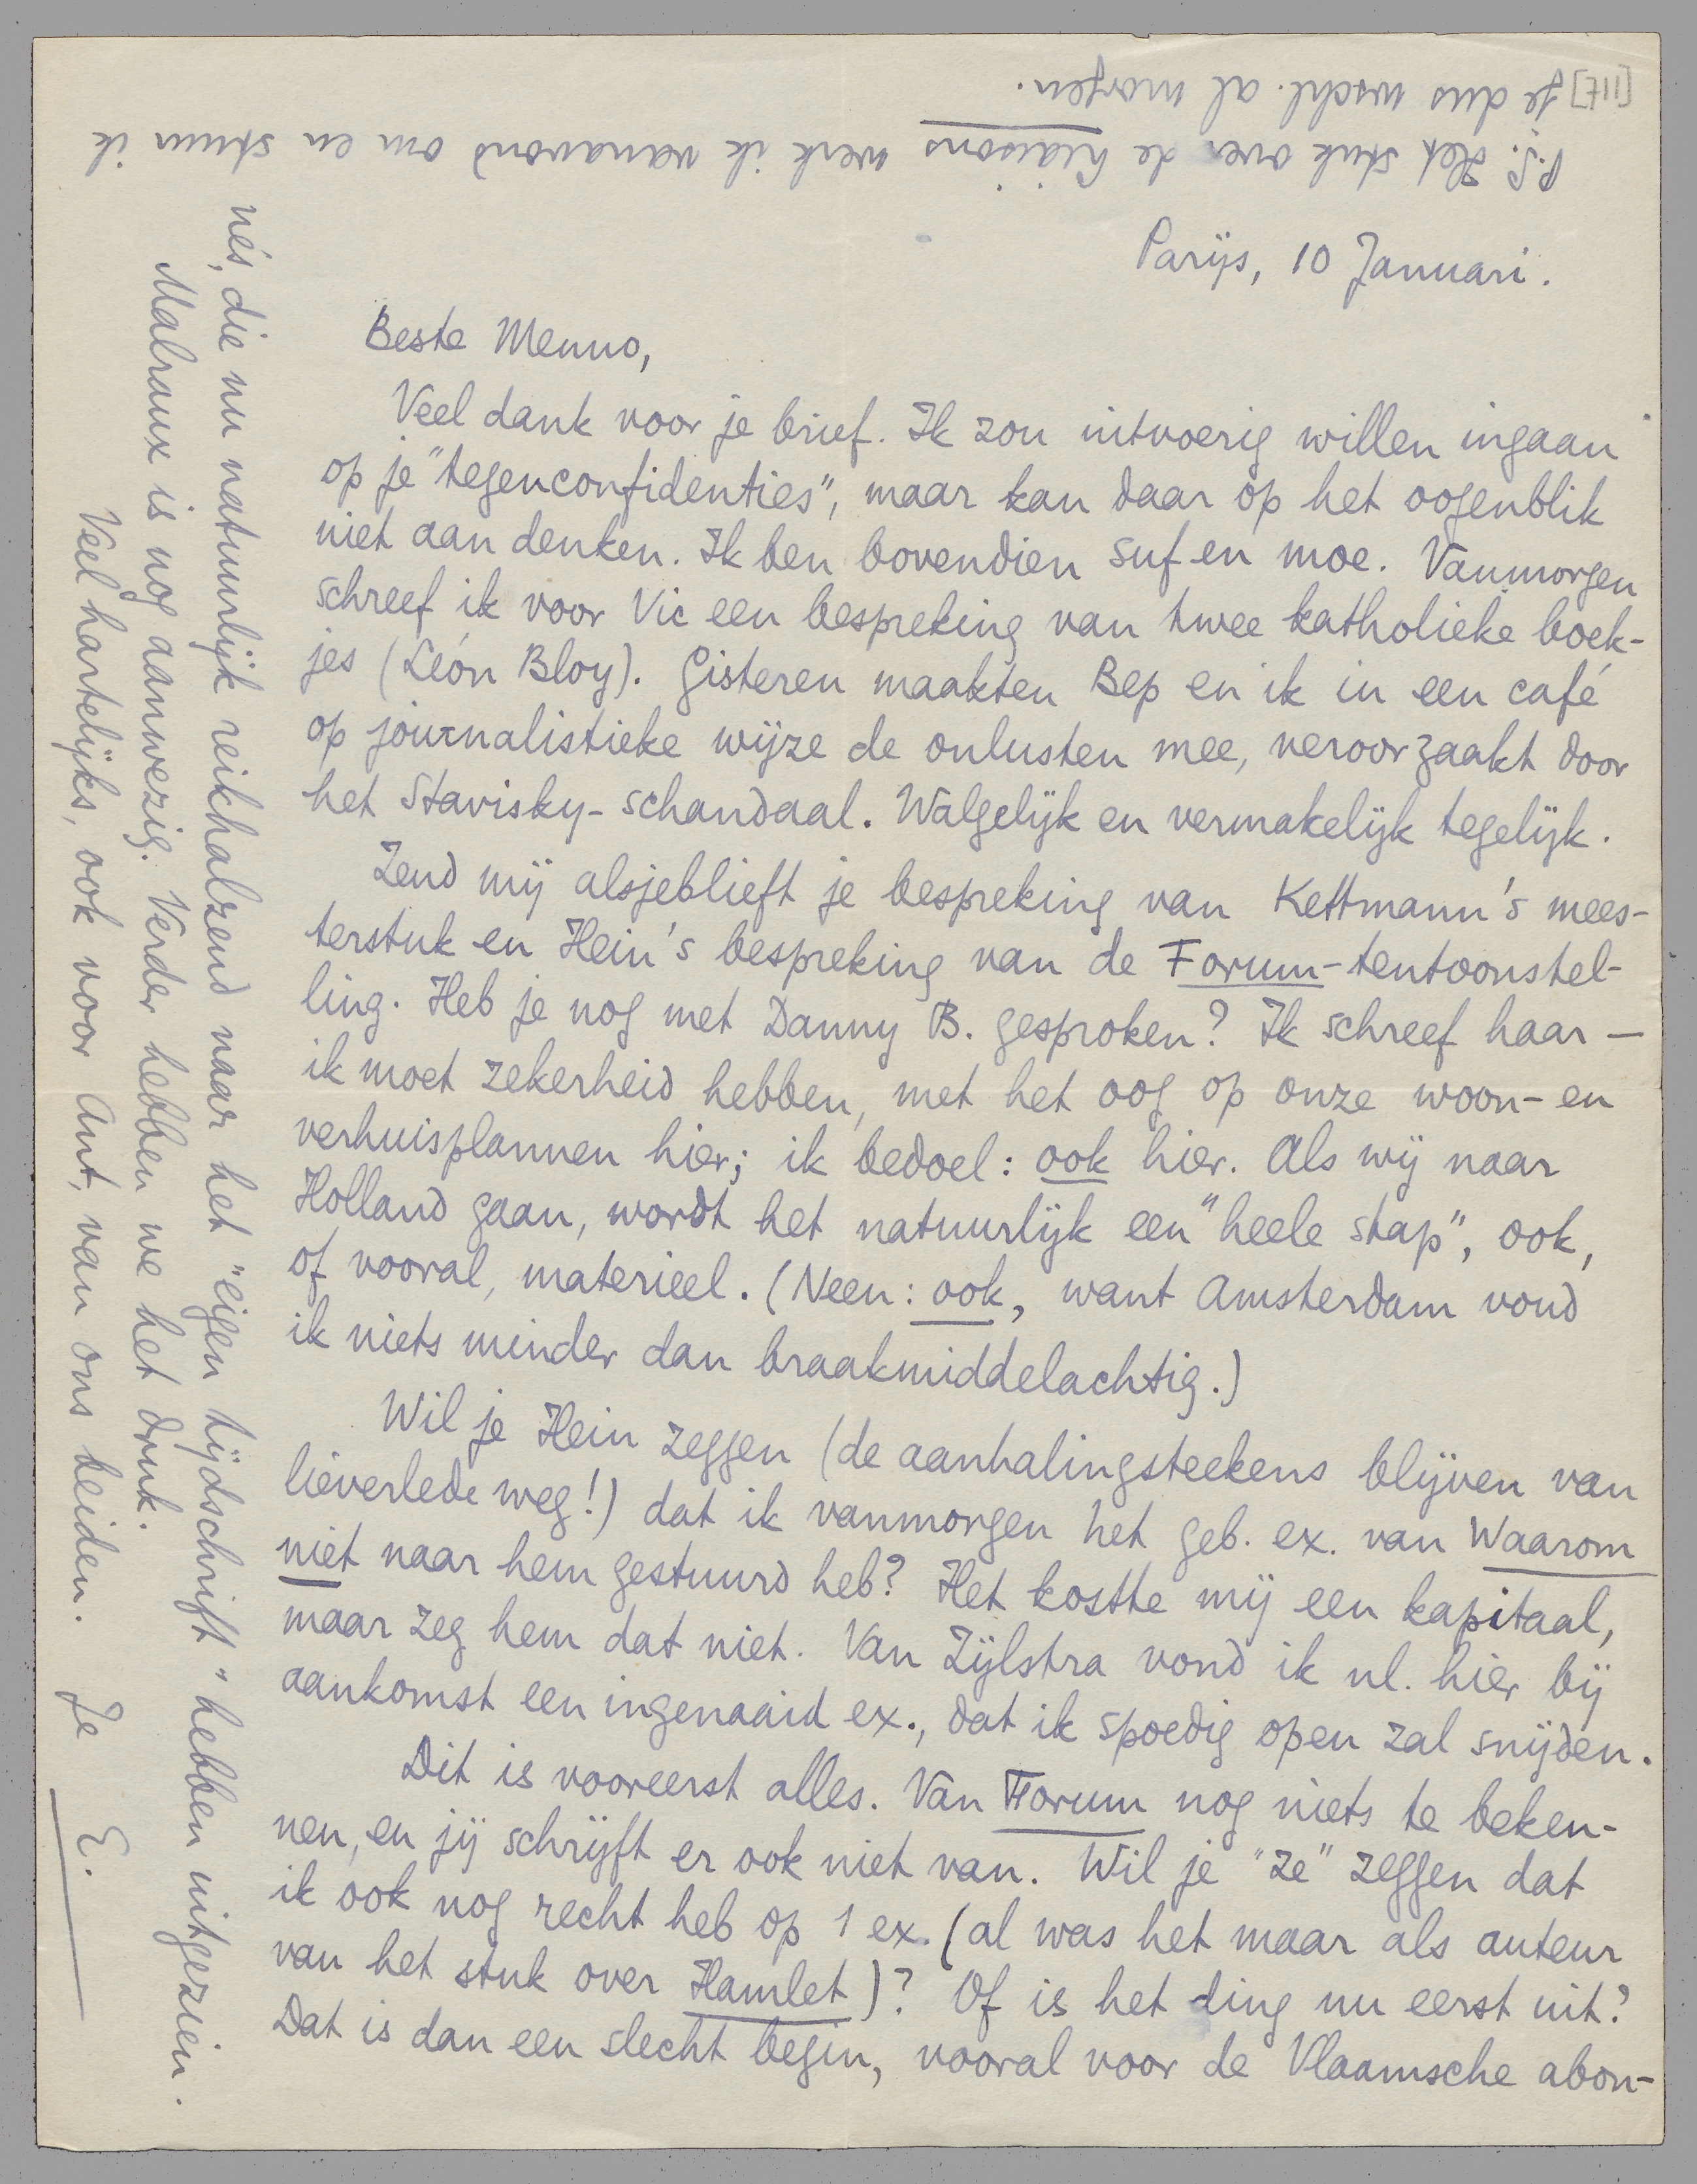 Parijs, 10 Januari.
Beste Menno,
Veel dank voor je brief. Ik zou uitvoerig willen ingaan
op je "tegenconfidenties", maar kan daar op het oogenblik
niet aan denken. Ik ben bovendien suf en moe. Vanmorgen
schreef ik voor Vic een bespreking van twee katholieke boek-
jes (Léon Bloy). Gisteren maakten Bep en ik in een café
op journalistieke wijze de onlusten mee, veroorzaakt door
het Stavisky-schandaal. Walgelijk en vermakelijk tegelijk.
Zend mij alsjeblieft je bespreking van Kettmann's mees-
terstuk en Hein's bespreking van de Forum-tentoonstel-
ling. Heb je nog met Danny B. gesproken? Ik schreef haar —
ik moet zekerheid hebben, met het oog op onze woon- en
verhuisplannen hier; ik bedoel: ook hier. Als wij naar
Holland gaan, wordt het natuurlijk een "heele stap", ook,
of vooral, materieel. (Neen: ook, want Amsterdam vond
ik niets minder dan braakmiddelachtig.)
Wil je Hein zeggen (de aanhalingsteekens blijven van
lieverlede weg!) dat ik vanmorgen het geb. ex. van Waarom
niet naar hem gestuurd heb? Het kostte mij een kapitaal,
maar zeg hem dat niet. Van Zijlstra vond ik nl. hier bij
aankomst een ingenaaid ex., dat ik spoedig open zal snijden.
Dit is vooreerst alles. Van Forum nog niets te beken-
nen, en jij schrijft er ook niet van. Wil je "ze" zeggen dat
ik ook nog recht heb op 1 ex. (al was het maar als auteur
van het stuk over Hamlet)? Of is het ding nu eerst uit?
Dat is dan een slecht begin, vooral voor de Vlaamsche abon-
né's, die nu natuurlijk reikhalzend naar het "eigen tijdschrift" hebben uitgezien.
Malraux is nog aanwezig. Verder hebben we het druk.
Veel hartelijks, ook voor Ant, van ons beiden. Je E.
P.S. Het stuk over de Liaisons werk ik vanavond om en stuur ik
je dus wschl. al morgen.
[117]